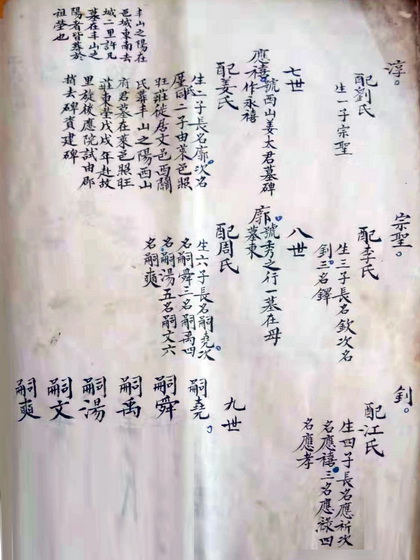 淳。
配劉氏
生一子宗聖
宗聖。
配李氏
生三子長名欽次名
釗三名鐸
釗。
配江氏
生四子長名應祈次
名應禧三名應祿四
名應孝
七世
應禧號西山姜太君墓碑
禧作永禧
配姜氏
生二子長名廓次名
屋二子由萊邑照
旺莊徙居文邑西關
氏葬丰山之陽西山
府君墓在萊邑照旺
莊東塋戊戌年赴故
里放後應院試由郡
捎去碑資建碑
丰山之陽在
邑城東南去
城二里許凡
墓在丰山之
陽者皆葬於
祖塋也
八世
廓。號秀之行一墓在母
墓東
配周氏
生六子長名嗣堯次
名嗣舜三名嗣禹四
名嗣湯五名嗣文六
名嗣奭
九世
嗣堯。
嗣舜
嗣禹
嗣湯
嗣文
嗣奭